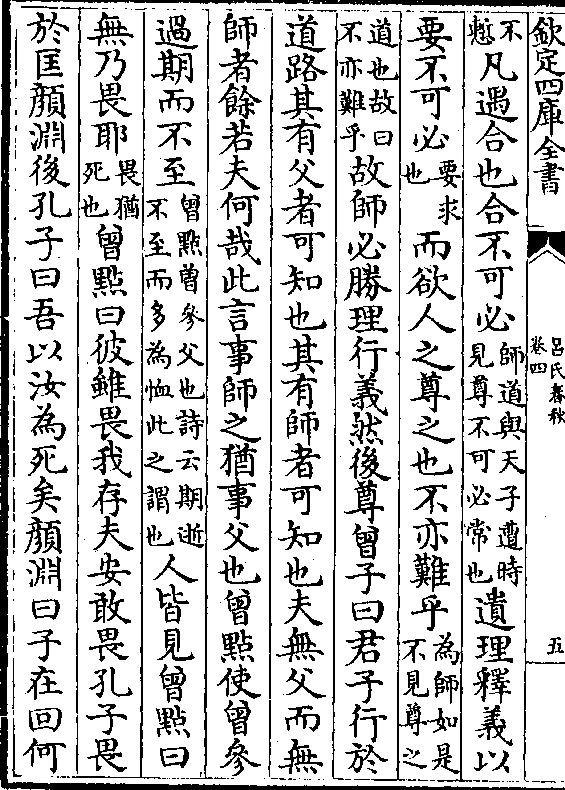 欽定四庫全書
呂氏春秋
卷四
五
不慙凡遇合也合不可必師道與天子遭時見尊不可必常也遺理釋義以
要不可必要求也而欲人之尊之也不亦難乎為師如是不見尊之
道也故曰不亦難乎故師必勝理行義然後尊曾子曰君子行於
道路其有父者可知也其有師者可知也夫無父而無
師者餘若夫何哉此言事師之猶事父也曾㸃使曾參
過期而不至曾㸃曾參父也詩云期逝不至而多為恤此之謂也人皆見曾㸃曰
無乃畏耶畏猶死也曾㸃曰彼雖畏我存夫安敢畏孔子畏
於匡顔淵後孔子曰吾以汝為死矣顔淵曰子在回何